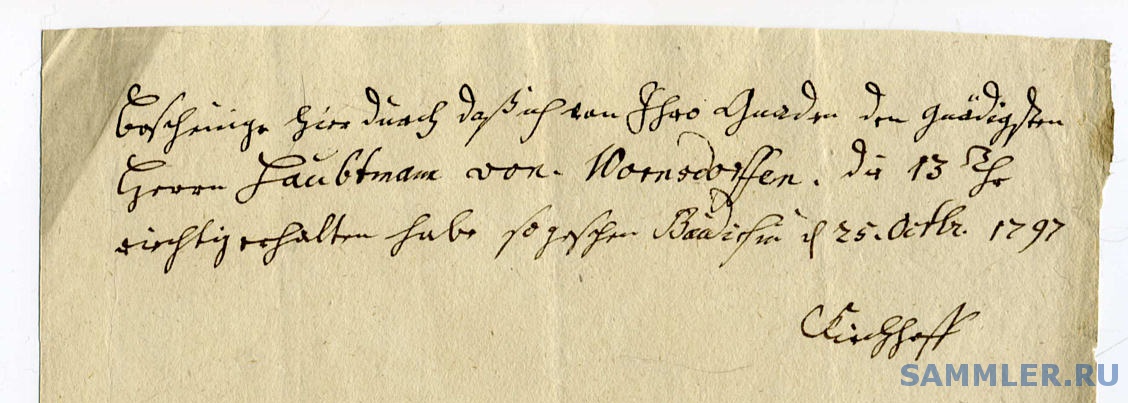 bescheinige hier durch daß ich von Ihro Gnaden den gnädigsten
Herrn Haubtmann von Wornsdorffen. die 13 Thr
richtig erhalten habe so geschehen d 25. Octbr. 1797
Kirchhoff
SAMMLER.RU